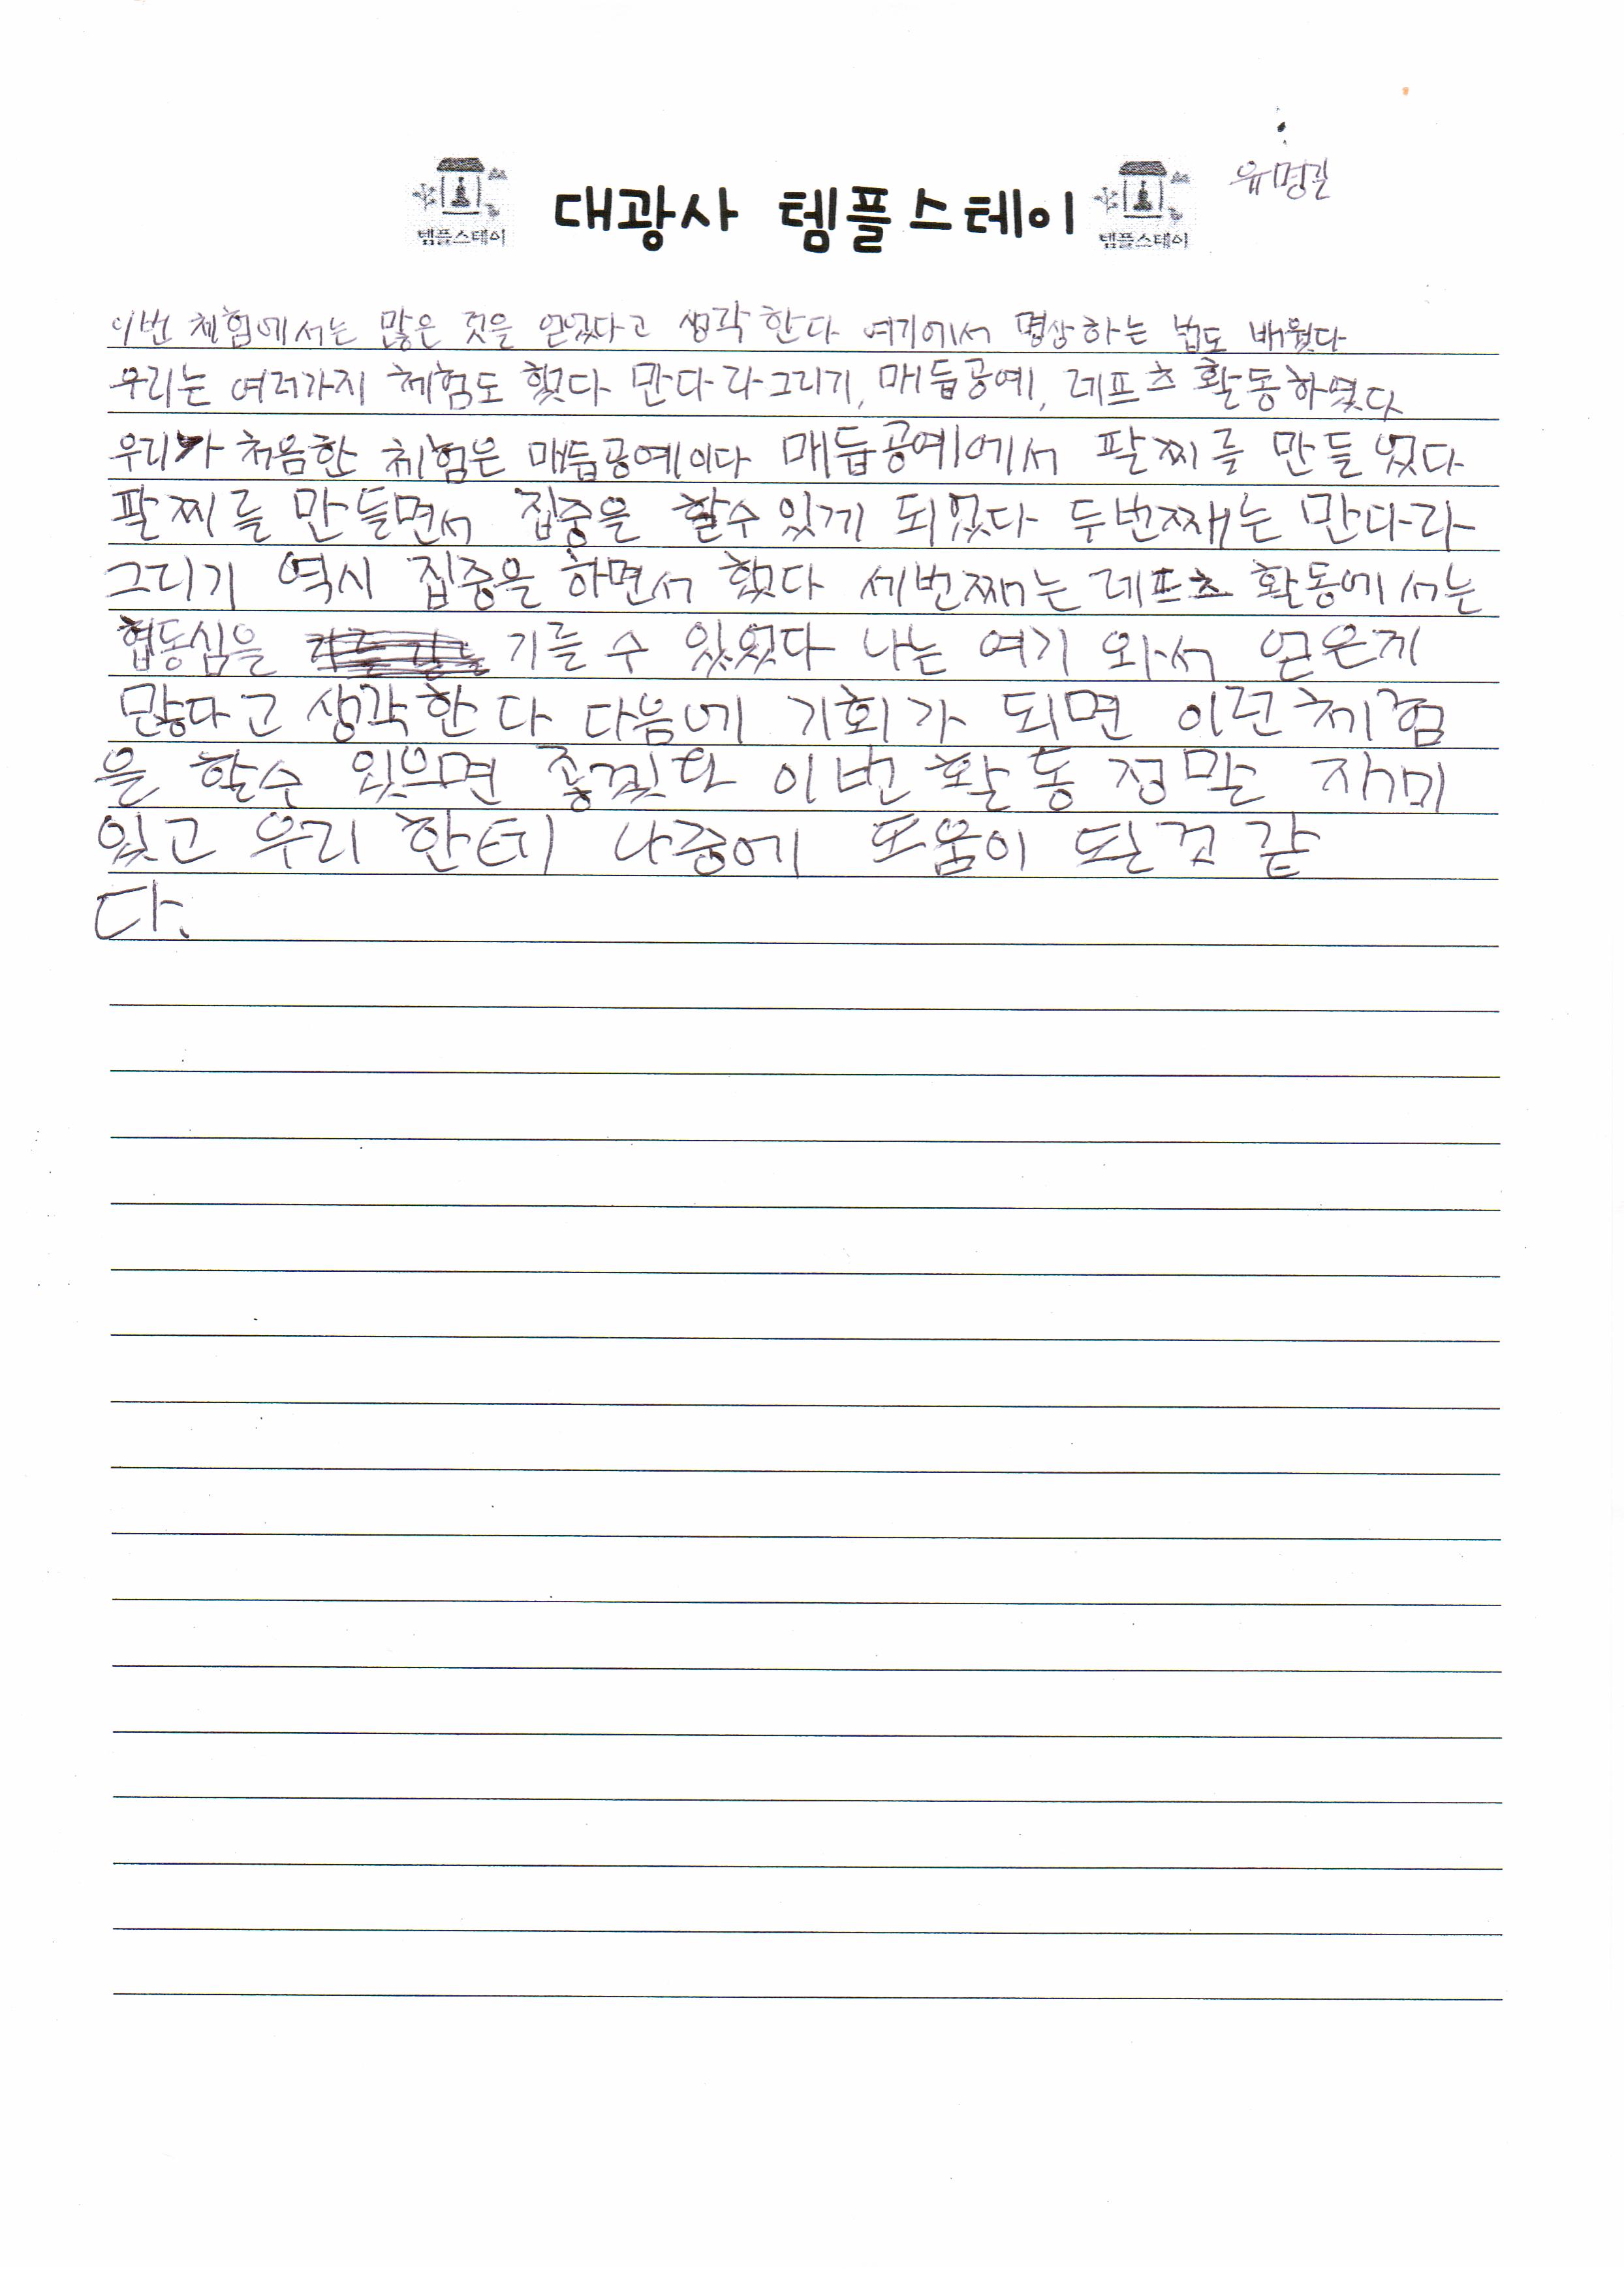 유명길
템플스테이 대광사 템플스테이 템플스테이
이번 체험에서는 많은 것을 얻었다고 생각한다 여기에서 명상하는 법도 배웠다
우리는 여러가지 체험도 했다 만다라그리기, 매듭공예, 레프츠 활동하였다
우리가 처음한 체험은 매듭공예이다 매듭공예에서 팔찌를 만들었다
팔찌를 만들면서 집중을 할수있게 되었다 두번째는 만다라
그리기 역시 집중을 하면서 했다 세번째는 레프츠 활동에서는
협동심을 기를 수 있었다 나는 여기 와서 얻은게
많다고 생각한다 다음에 기회가 되면 이런체험
을 할수 있으면 좋겠다 이번활동 정말 재미
있고 우리 한테 나중에 도움이 되는것 같
다.